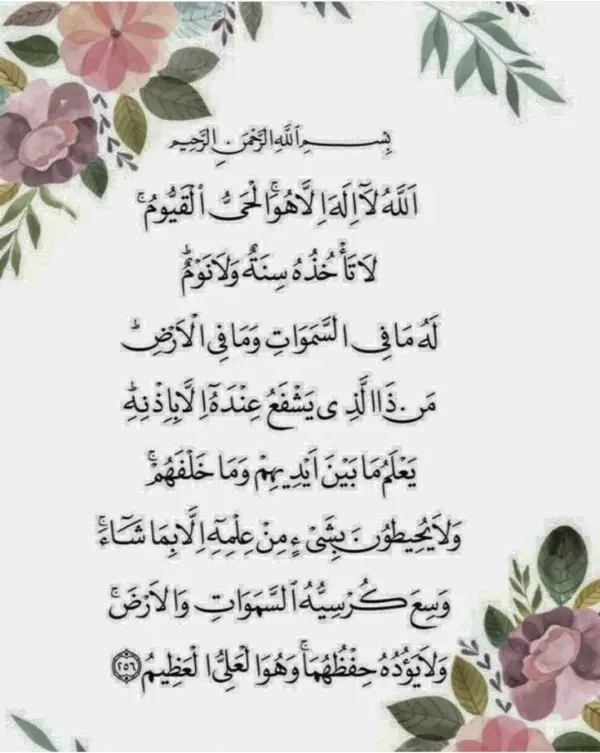 بِسْمِ اللَّهِ الرَّحْمَنِ الرَّحِيمِ
اَللَّهُ لَآ اِلَهَ اِلَّا هُوَۚ اَلْحَيُّ الْقَيُّومُۚ
لَا تَأْخُذُهُ سِنَةٌ وَلَا نَوْمٌؕ
لَهُ مَا فِي السَّمَوَاتِ وَمَا فِي الْاَرْضِؕ
مَنْ ذَا الَّذِي يَشْفَعُ عِنْدَهُٓ اِلَّا بِاِذْنِهِؕ
يَعْلَمُ مَا بَيْنَ اَيْدِيهِمْ وَمَا خَلْفَهُمْۚ
وَلَا يُحِيطُونَ بِشَيْءٍ مِنْ عِلْمِهِ اِلَّا بِمَا شَآءَۚ
وَسِعَ كُرْسِيُّهُ السَّمَوَاتِ وَالْاَرْضَۚ
وَلَا يَؤُدُهُ حِفْظُهُمَاۚ وَهُوَ الْعَلِيُّ الْعَظِيمُ ﴿٢٥٦﴾